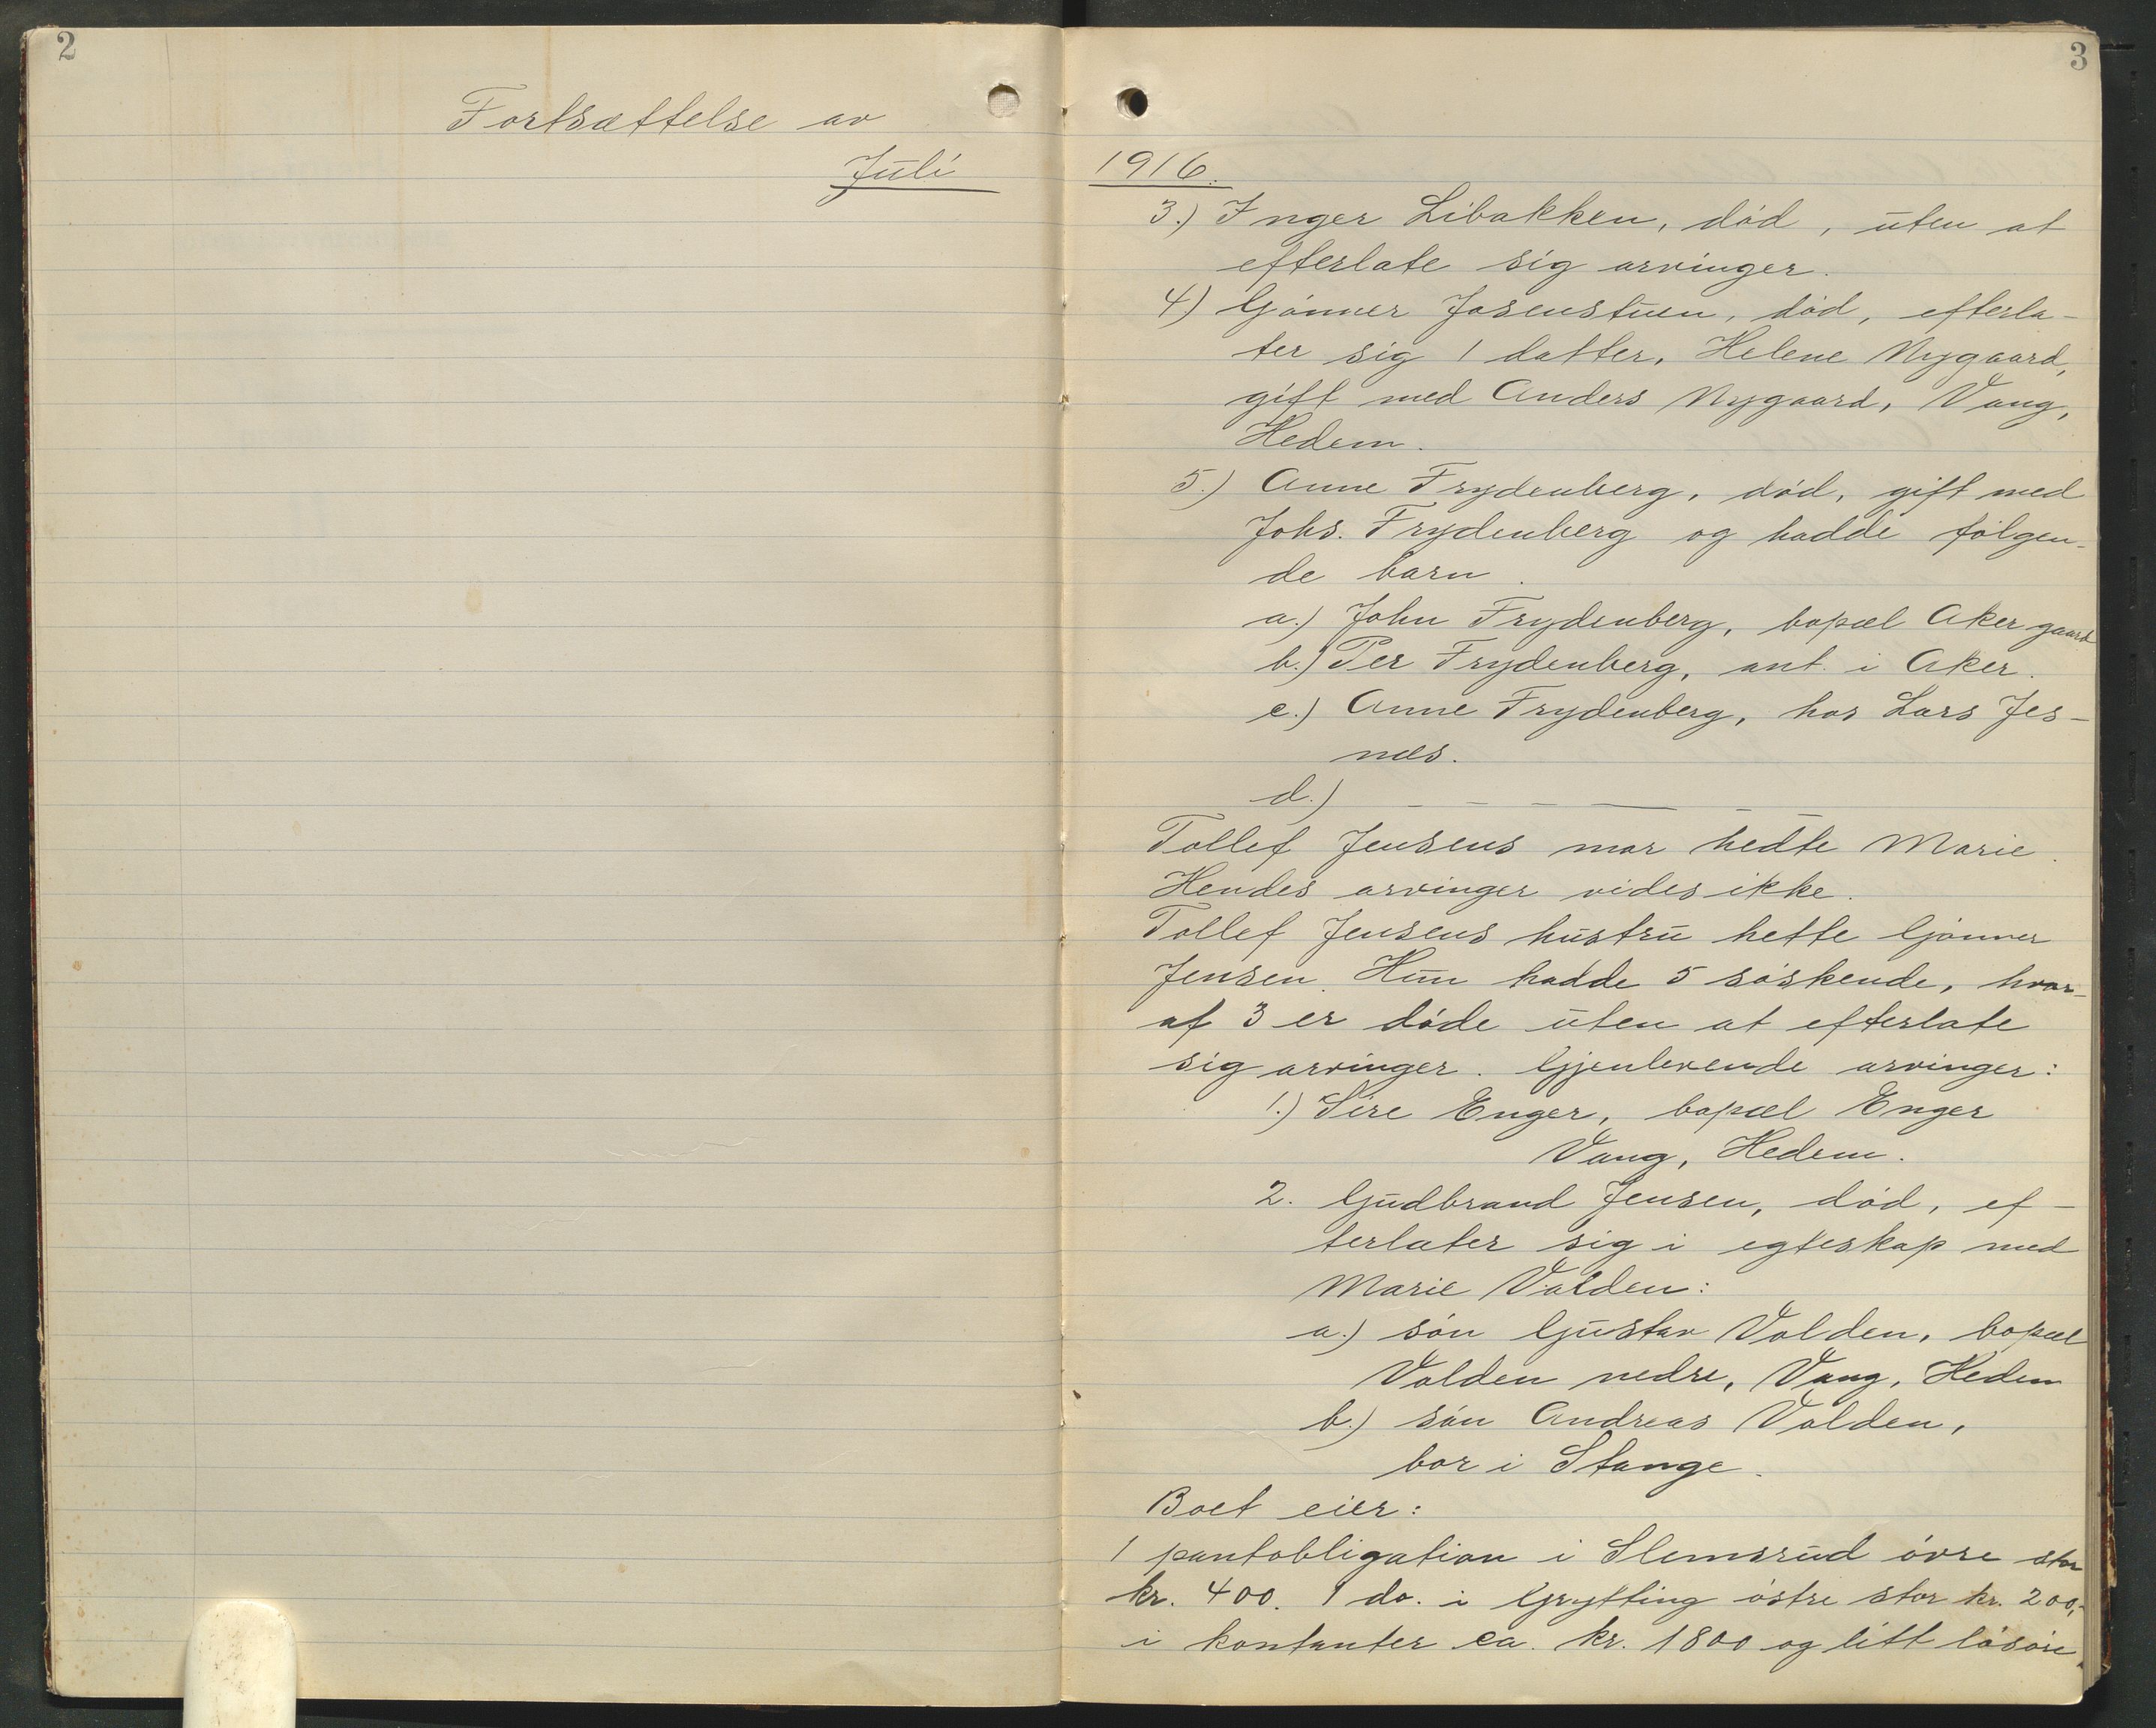 2
Fortsættelse av
Juli
3
1916.
3.) Inger Libakken, död, uten at
efterlate sig arvinger.
4) Gönner Josenstuen, död, efterla-
ter sig 1 datter, Helene Nygaard,
gift med Anders Nygaard, Vang,
Hedem.
5.) Anne Frydenberg, död, gift med
Johs. Frydenberg og hadde fölgen-
de barn.
a.) John Frydenberg, bopæl Aker gaard
b.) Per Frydenberg, ant. i Aker.
c.) Anne Frydenberg, hos Lars Jes-
næs.
d.) _ _ _ _ _ _
Tollef Jensens mor hedte Marie.
Hendes arvinger vides ikke.
Tollef Jensens hustru hette Gönner
Jensen. Hun hadde 5 söskende, hvor-
af 3 er döde uten at efterlate
sig arvinger. Gjenlevende arvinger:
1.) Sire Enger, bopæl Enger
Vang, Hedem.
2. Gudbrand Jensen, död, ef-
terlater sig i egteskap med
Marie Volden:
a.) sön Gustav Volden, bopæl
Volden nedre, Vang, Hedem
b.) sön Andreas Volden,
bor i Stange.
Boet eier:
1 pantobligation i Slemsrud övre stor
kr. 400. 1 do. i Grytting östre stor kr. 200,-
i kontanter ca. kr. 1800 og litt lösöre.